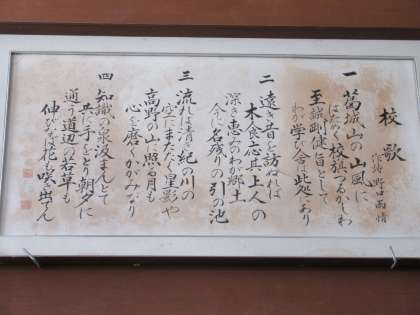 校歌
作詩 野口雨情
一 葛城山の山風に
はためく校旗つるがしわ
至誠剛健旨として
わが学び舎は此処にあり
二 遠き昔を訪ぬれば
木食応其上人の
深き恵みのわが郷土
今に名残りの引の池
三 流れは清き紀の川の
空にまたたく星影や
高野の山に照る月も
心を磨くかがみなり
四 知識の泉汲まんとて
共に手をとり朝夕に
通う道辺の若草も
伸びなば花の咲き出でん